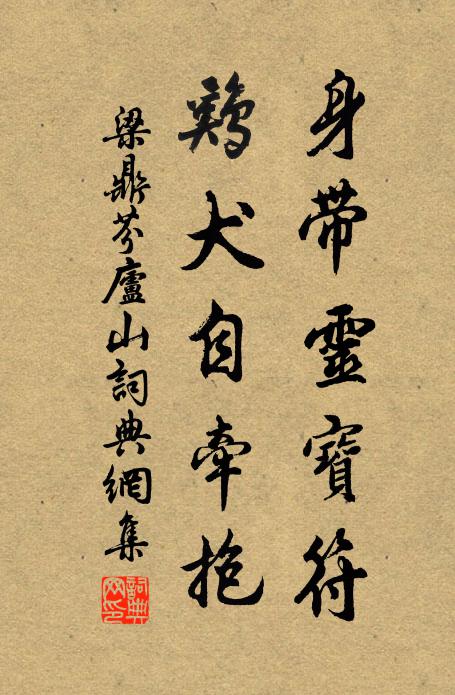 身帶靈寶符
鷄犬自牽抱
梁鼎芬廬山詞典網集
詞典网印